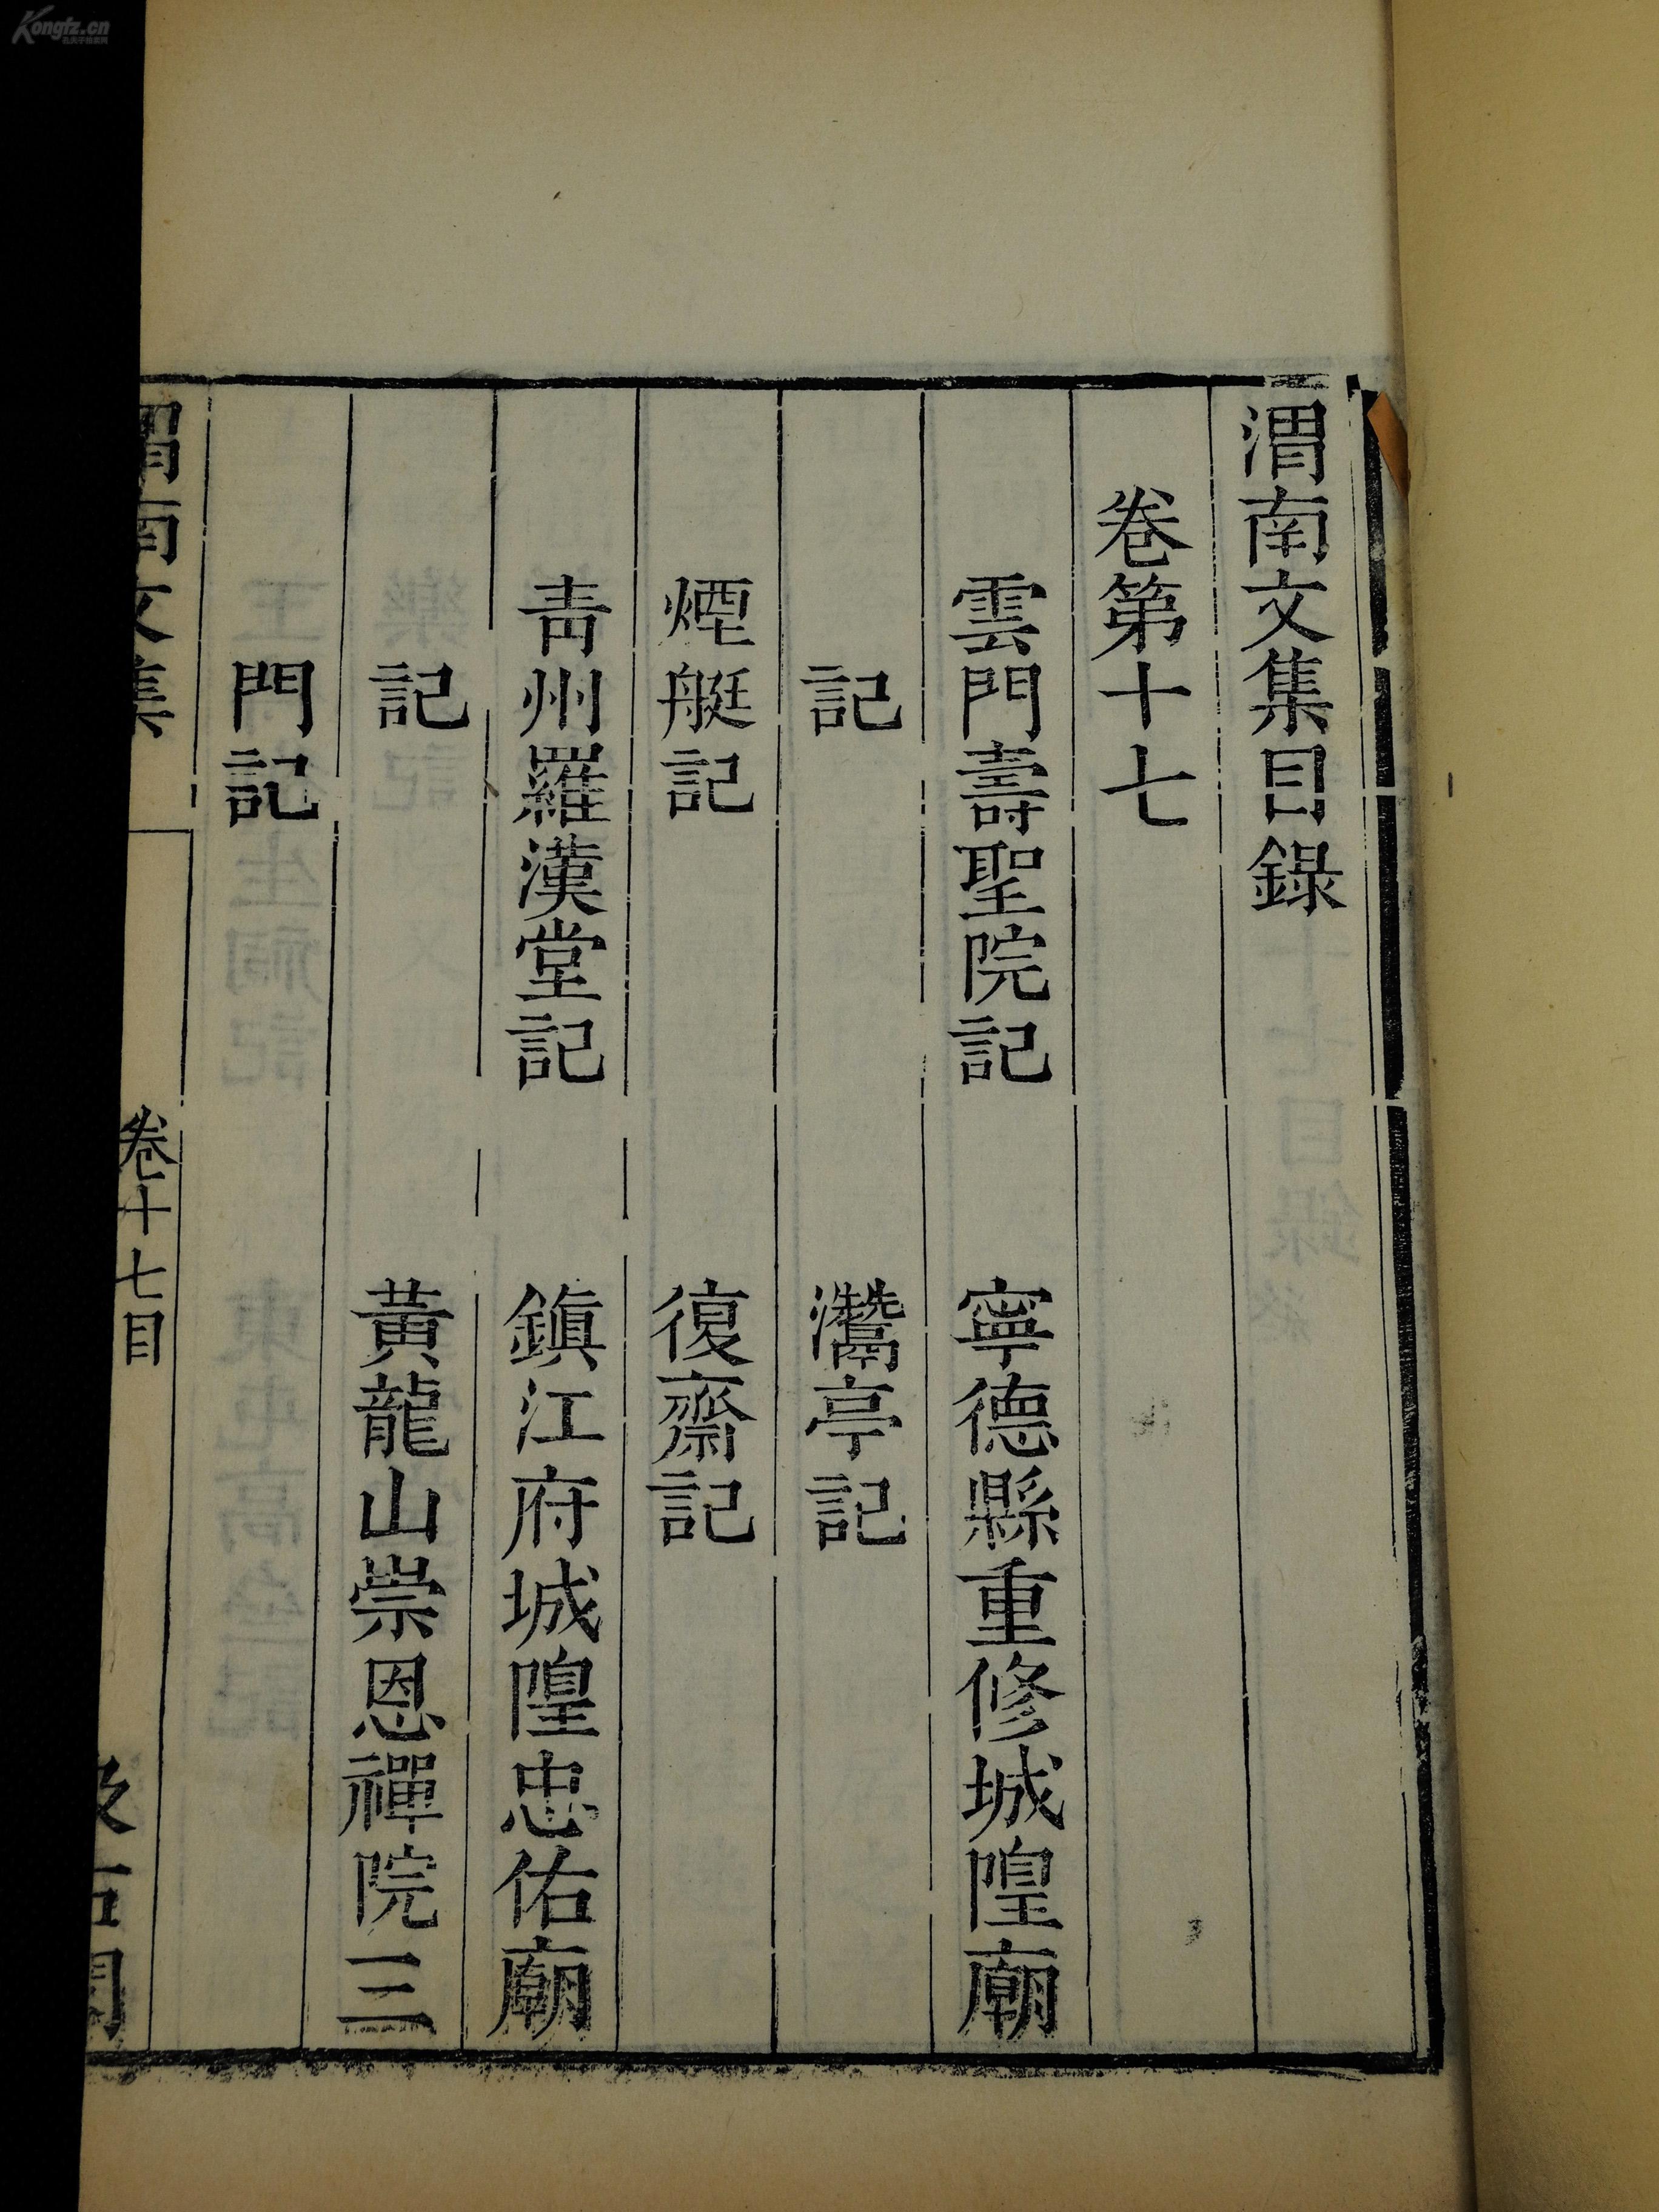 渭南文集目錄
卷第十七
雲門壽聖院記 寧德縣重修城隍廟
記 灊亭記
煙艇記 復齋記
青州羅漢堂記 鎮江府城隍忠佑廟
記 黃龍山崇恩禪院三
門記
渭南文集 卷十七目 汲古閣
Kongfz.cn